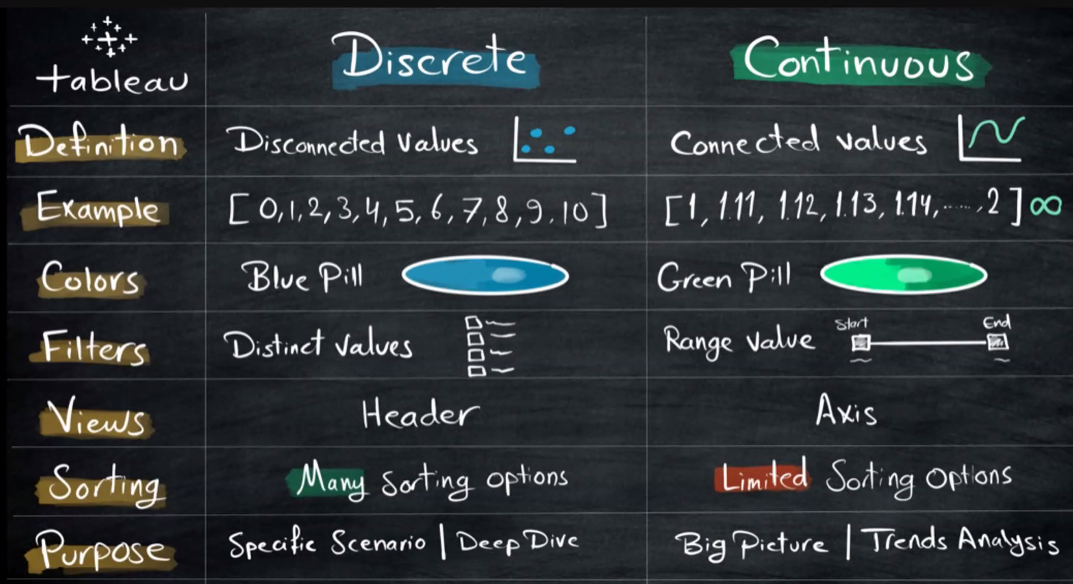 tableau
Discrete
Continuous
Definition
Disconnected Values
Connected values
Example
[0,1,2,3,4,5,6,7,8,9.10]
[1, 1.11, 1.12, 1.13, 1.14,......, 2] ∞
Colors
Blue Pill
Green Pill
Filters
Distinct Values
Range Value
Start
End
Views
Header
Axis
Sorting
Many Sorting options
Limited Sorting Options
Purpose
Specific Scenario | Deep Dive
Big Picture | Trends Analysis